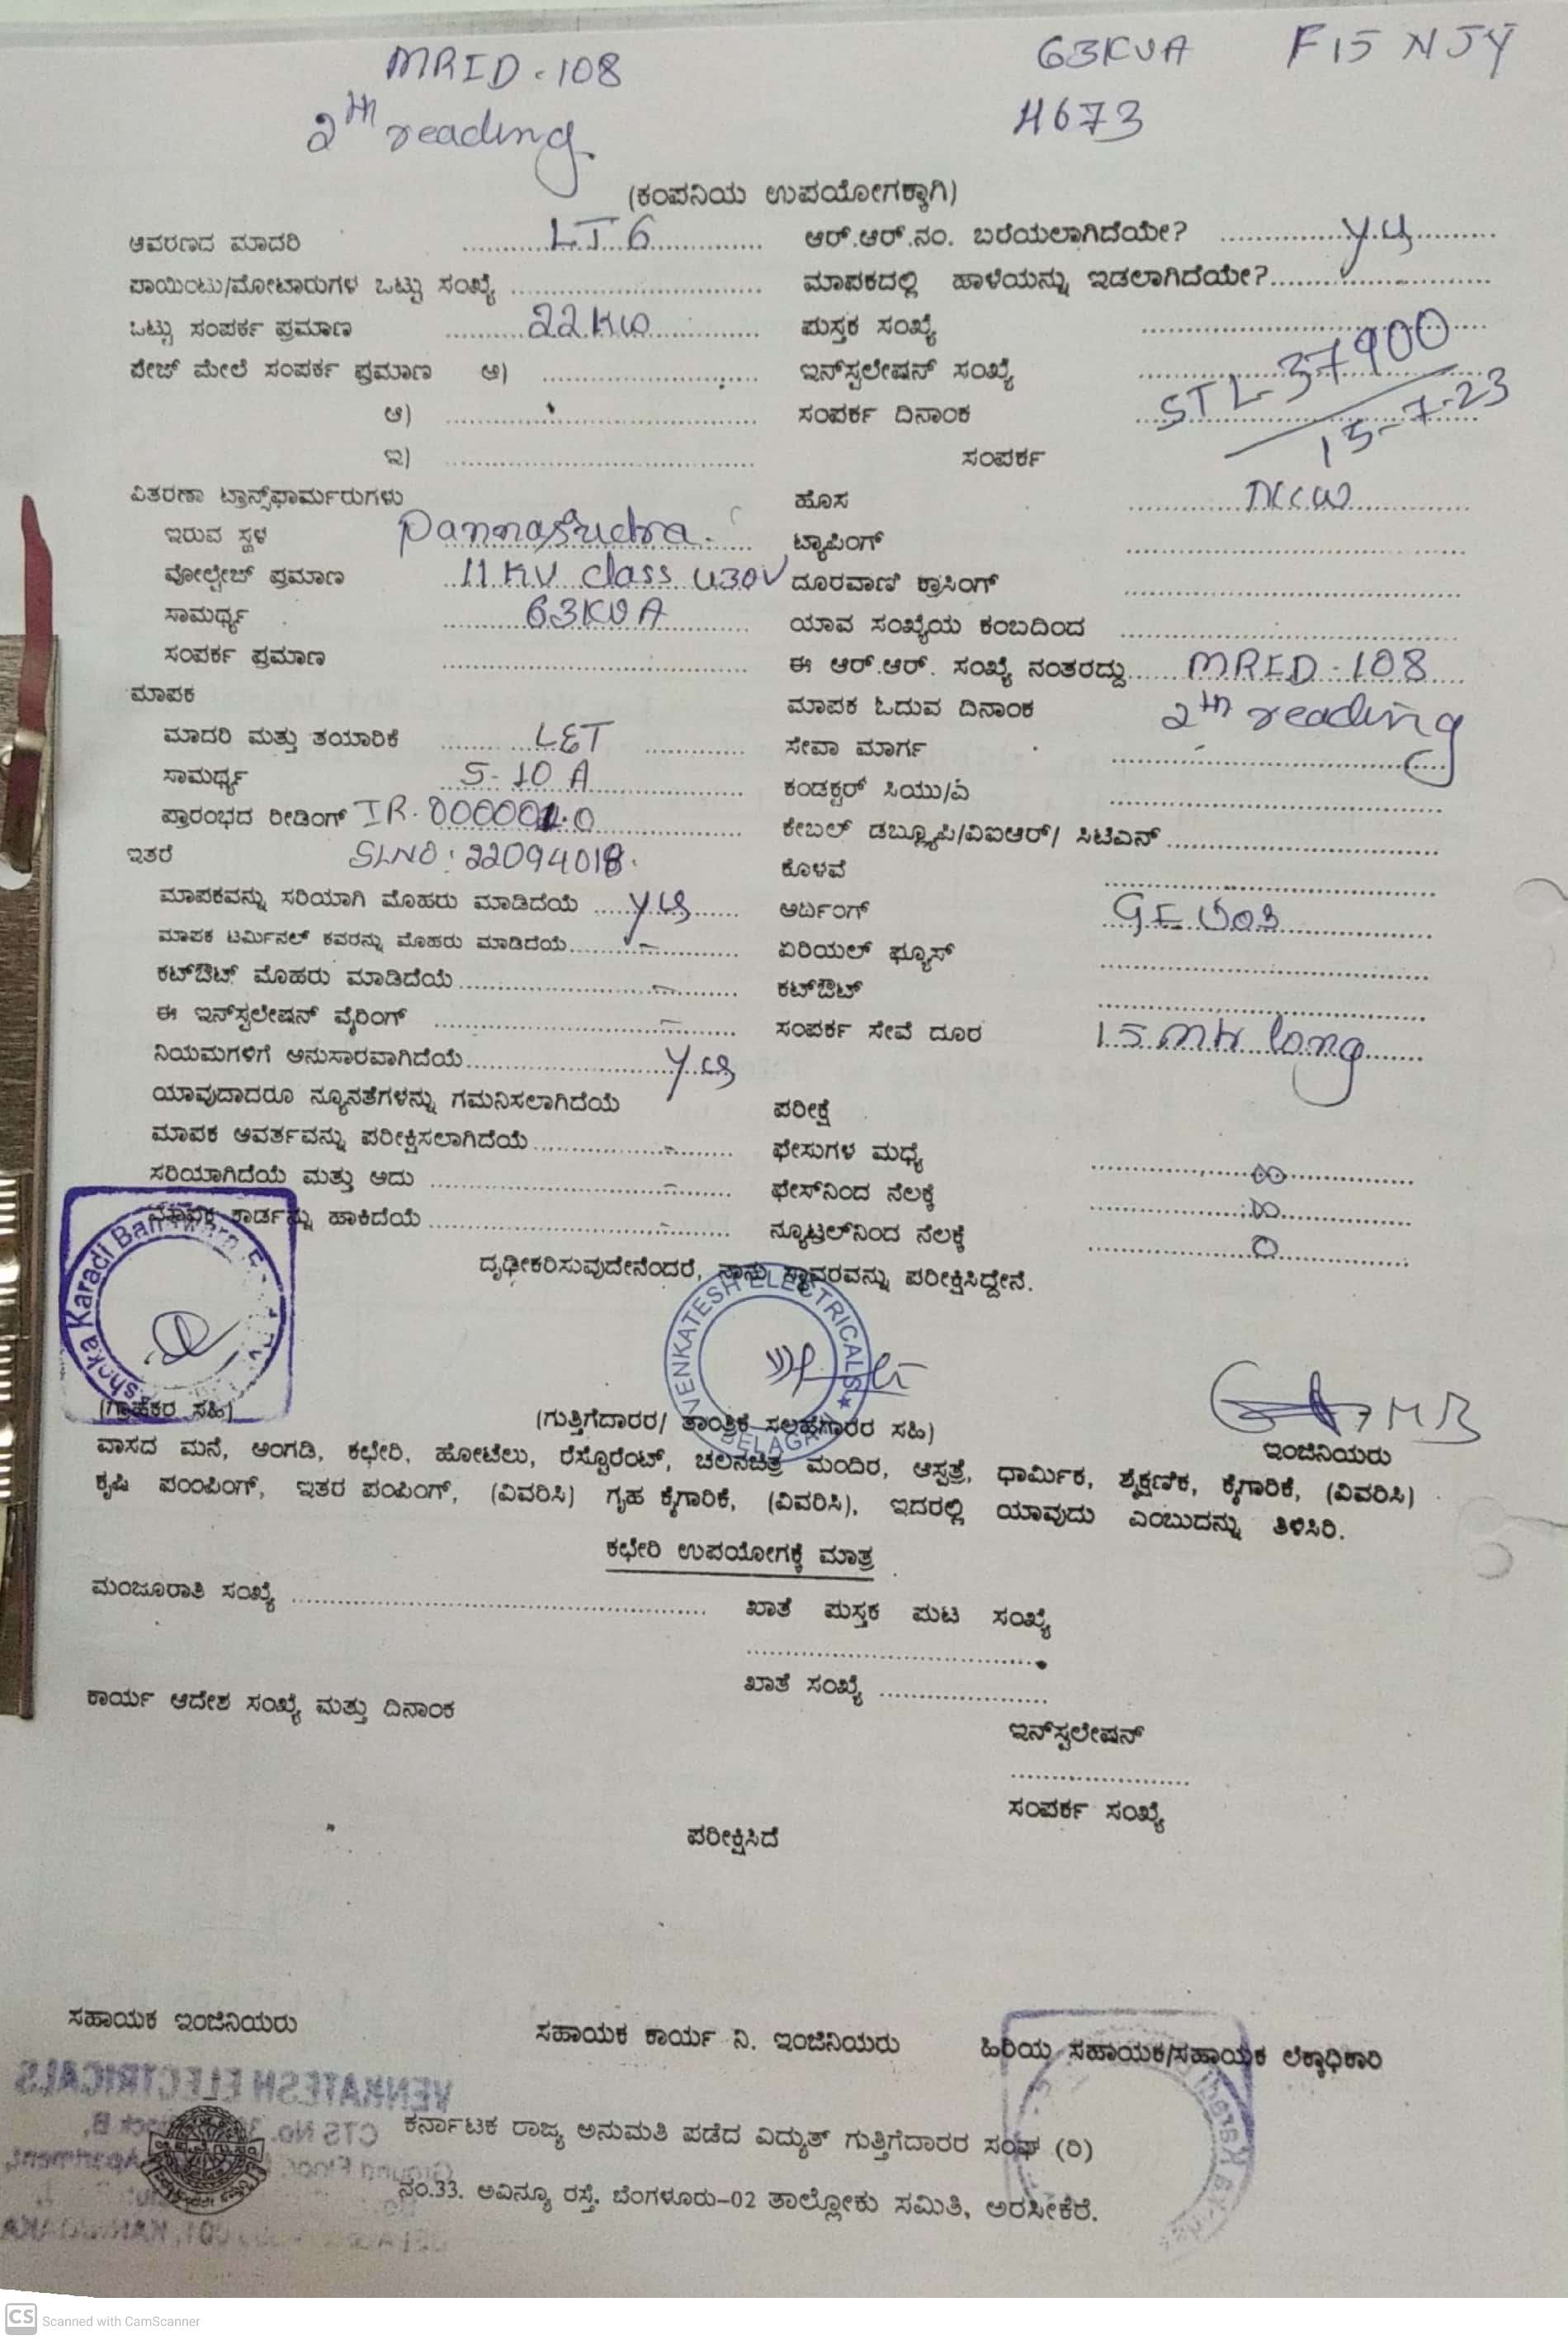 MRID - 108
63KVA F15 NJY
2th reading
4673
(ಕಂಪನಿಯ ಉಪಯೋಗಕ್ಕಾಗಿ)
ಆವರಣದ ಮಾದರಿ LT 6 ಆರ್.ಆರ್.ನಂ. ಬರೆಯಲಾಗಿದೆಯೇ?
ಪಾಯಿಂಟು/ಮೋಟಾರುಗಳ ಒಟ್ಟು ಸಂಖ್ಯೆ ಮಾಪಕದಲ್ಲಿ ಹಾಳೆಯನ್ನು ಇಡಲಾಗಿದೆಯೇ?
ಒಟ್ಟು ಸಂಪರ್ಕ ಪ್ರಮಾಣ 22 KW ಪುಸ್ತಕ ಸಂಖ್ಯೆ
ಪೇಜ್ ಮೇಲೆ ಸಂಪರ್ಕ ಪ್ರಮಾಣ ಆ) ಇನ್‌ಸ್ಟಲೇಷನ್ ಸಂಖ್ಯೆ STL-37900
ಆ) ಸಂಪರ್ಕ ದಿನಾಂಕ 15-7-23
ಇ) ಸಂಪರ್ಕ
ವಿತರಣಾ ಟ್ರಾನ್ಸ್‌ಫಾರ್ಮರುಗಳು ಹೊಸ
ಇರುವ ಸ್ಥಳ ಟ್ಯಾಪಿಂಗ್
ವೋಲ್ಟೇಜ್ ಪ್ರಮಾಣ 11 KV class 430V ದೂರವಾಣಿ ಕ್ರಾಸಿಂಗ್
ಸಾಮರ್ಥ್ಯ 63KVA ಯಾವ ಸಂಖ್ಯೆಯ ಕಂಬದಿಂದ
ಸಂಪರ್ಕ ಪ್ರಮಾಣ ಈ ಆರ್.ಆರ್. ಸಂಖ್ಯೆ ನಂತರದ್ದು MRID - 108
ಮಾಪಕ ಮಾಪಕ ಓದುವ ದಿನಾಂಕ 2th reading
ಮಾದರಿ ಮತ್ತು ತಯಾರಿಕೆ L&T ಸೇವಾ ಮಾರ್ಗ
ಸಾಮರ್ಥ್ಯ 5-10 A ಕಂಡಕ್ಟರ್ ಸಿಯು/ಎ
ಪ್ರಾರಂಭದ ರೀಡಿಂಗ್ IR. ಕೇಬಲ್ ಡಬ್ಲ್ಯೂಪಿ/ವಿಐಆರ್/ ಸಿಟಿಎಸ್
ಇತರೆ SLNO: 22094018. ಕೊಳವೆ
ಮಾಪಕವನ್ನು ಸರಿಯಾಗಿ ಮೊಹರು ಮಾಡಿದೆಯೆ yes ಅರ್ಥಿಂಗ್
ಮಾಪಕ ಟರ್ಮಿನಲ್ ಕವರನ್ನು ಮೊಹರು ಮಾಡಿದೆಯೆ - ಏರಿಯಲ್ ಫ್ಯೂಸ್
ಕಟ್‌ಔಟ್ ಮೊಹರು ಮಾಡಿದೆಯೆ - ಕಟ್‌ಔಟ್
ಈ ಇನ್‌ಸ್ಟಲೇಷನ್ ವೈರಿಂಗ್ - ಸಂಪರ್ಕ ಸೇವೆ ದೂರ 15 mtr long
ನಿಯಮಗಳಿಗೆ ಅನುಸಾರವಾಗಿದೆಯೆ yes
ಯಾವುದಾದರೂ ನ್ಯೂನತೆಗಳನ್ನು ಗಮನಿಸಲಾಗಿದೆಯೆ ಪರೀಕ್ಷೆ
ಮಾಪಕ ಆವರ್ತವನ್ನು ಪರೀಕ್ಷಿಸಲಾಗಿದೆಯೆ - ಫೇಸುಗಳ ಮಧ್ಯೆ ∞
ಸರಿಯಾಗಿದೆಯೆ ಮತ್ತು ಅದು - ಫೇಸ್‌ನಿಂದ ನೆಲಕ್ಕೆ ∞
ಮಾಪಕ ಕಾರ್ಡನ್ನು ಹಾಕಿದೆಯೆ - ನ್ಯೂಟ್ರಲ್‌ನಿಂದ ನೆಲಕ್ಕೆ 0
ದೃಢೀಕರಿಸುವುದೇನೆಂದರೆ, ನಾನು ಸ್ಥಾವರವನ್ನು ಪರೀಕ್ಷಿಸಿದ್ದೇನೆ.
VENKATESH ELECTRICALS ★ BELAGAVI
(ಗ್ರಾಹಕರ ಸಹಿ)
(ಗುತ್ತಿಗೆದಾರರ/ ತಾಂತ್ರಿಕ ಸಲಹೆಗಾರರ ಸಹಿ)
ಇಂಜಿನಿಯರು
ವಾಸದ ಮನೆ, ಅಂಗಡಿ, ಕಛೇರಿ, ಹೋಟೆಲು, ರೆಸ್ಟೊರೆಂಟ್, ಚಲನಚಿತ್ರ ಮಂದಿರ, ಆಸ್ಪತ್ರೆ, ಧಾರ್ಮಿಕ, ಶೈಕ್ಷಣಿಕ, ಕೈಗಾರಿಕೆ, (ವಿವರಿಸಿ)
ಕೃಷಿ ಪಂಂಪಿಂಗ್, ಇತರ ಪಂಪಿಂಗ್, (ವಿವರಿಸಿ) ಗೃಹ ಕೈಗಾರಿಕೆ, (ವಿವರಿಸಿ), ಇದರಲ್ಲಿ ಯಾವುದು ಎಂಬುದನ್ನು ತಿಳಿಸಿರಿ.
ಕಛೇರಿ ಉಪಯೋಗಕ್ಕೆ ಮಾತ್ರ
ಮಂಜೂರಾತಿ ಸಂಖ್ಯೆ ಖಾತೆ ಪುಸ್ತಕ ಪುಟ ಸಂಖ್ಯೆ
ಖಾತೆ ಸಂಖ್ಯೆ
ಕಾರ್ಯ ಆದೇಶ ಸಂಖ್ಯೆ ಮತ್ತು ದಿನಾಂಕ
ಇನ್‌ಸ್ಟಲೇಷನ್
ಸಂಪರ್ಕ ಸಂಖ್ಯೆ
ಪರೀಕ್ಷಿಸಿದೆ
ಸಹಾಯಕ ಇಂಜಿನಿಯರು ಸಹಾಯಕ ಕಾರ್ಯ ನಿ. ಇಂಜಿನಿಯರು ಹಿರಿಯ ಸಹಾಯಕ/ಸಹಾಯಕ ಲೆಕ್ಕಾಧಿಕಾರಿ
VENKATESH ELECTRICALS
ಕರ್ನಾಟಕ ರಾಜ್ಯ ಅನುಮತಿ ಪಡೆದ ವಿದ್ಯುತ್ ಗುತ್ತಿಗೆದಾರರ ಸಂಘ (ರಿ)
ನಂ.33. ಅವಿನ್ಯೂ ರಸ್ತೆ, ಬೆಂಗಳೂರು-02 ತಾಲ್ಲೋಕು ಸಮಿತಿ, ಅರಸೀಕೆರೆ.
CS Scanned with CamScanner